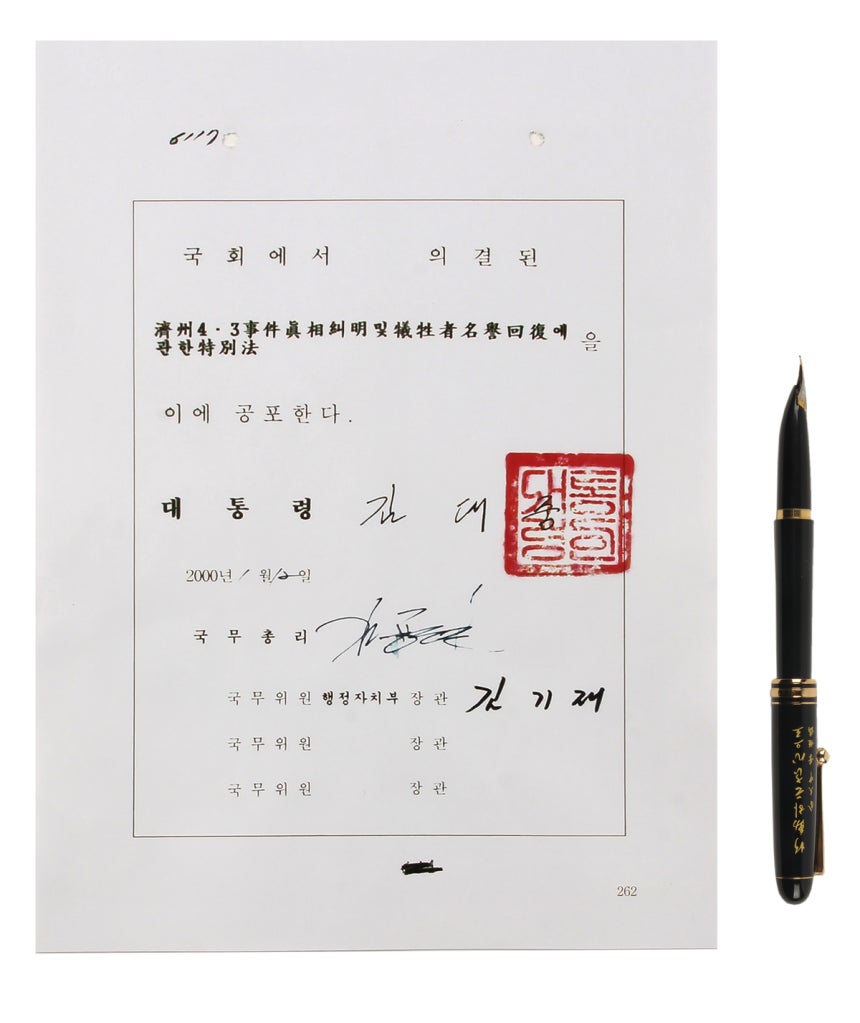 6117
국회에서 의결된
濟州4·3事件眞相糾明및犧牲者名譽回復에
관한特別法 을
이에 공포한다.
대통령 김대중
대통령
2000년 1월 12일
국무총리
국무위원 행정자치부 장관 김기재
국무위원 장관
국무위원 장관
262